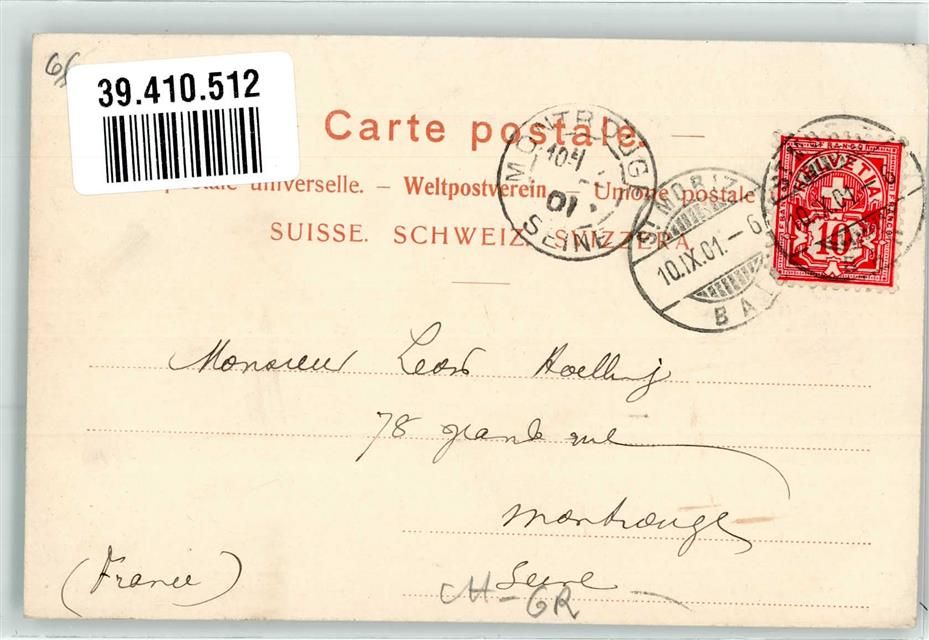 39.410.512
Carte postale.
postale universelle. – Weltpostverein. – Unione postale
SUISSE. SCHWEIZ. SVIZZERA.
MONTROUGE
10
01
SEINE
ST. MORIZ
10.IX.01.–6
BAD
HELVETIA
10
Monsieur Leon
78 grande rue
Montrouge
Seine
(France)
CH-GR